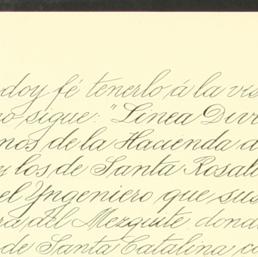 doy fé tenerlo á la vis
mo sigue: "Linea Div
nos de la Hacienda d
y los de Santa Rosal
el Yngeniero que sus
ra del Mezquite, dond
de Santa Catalina, co